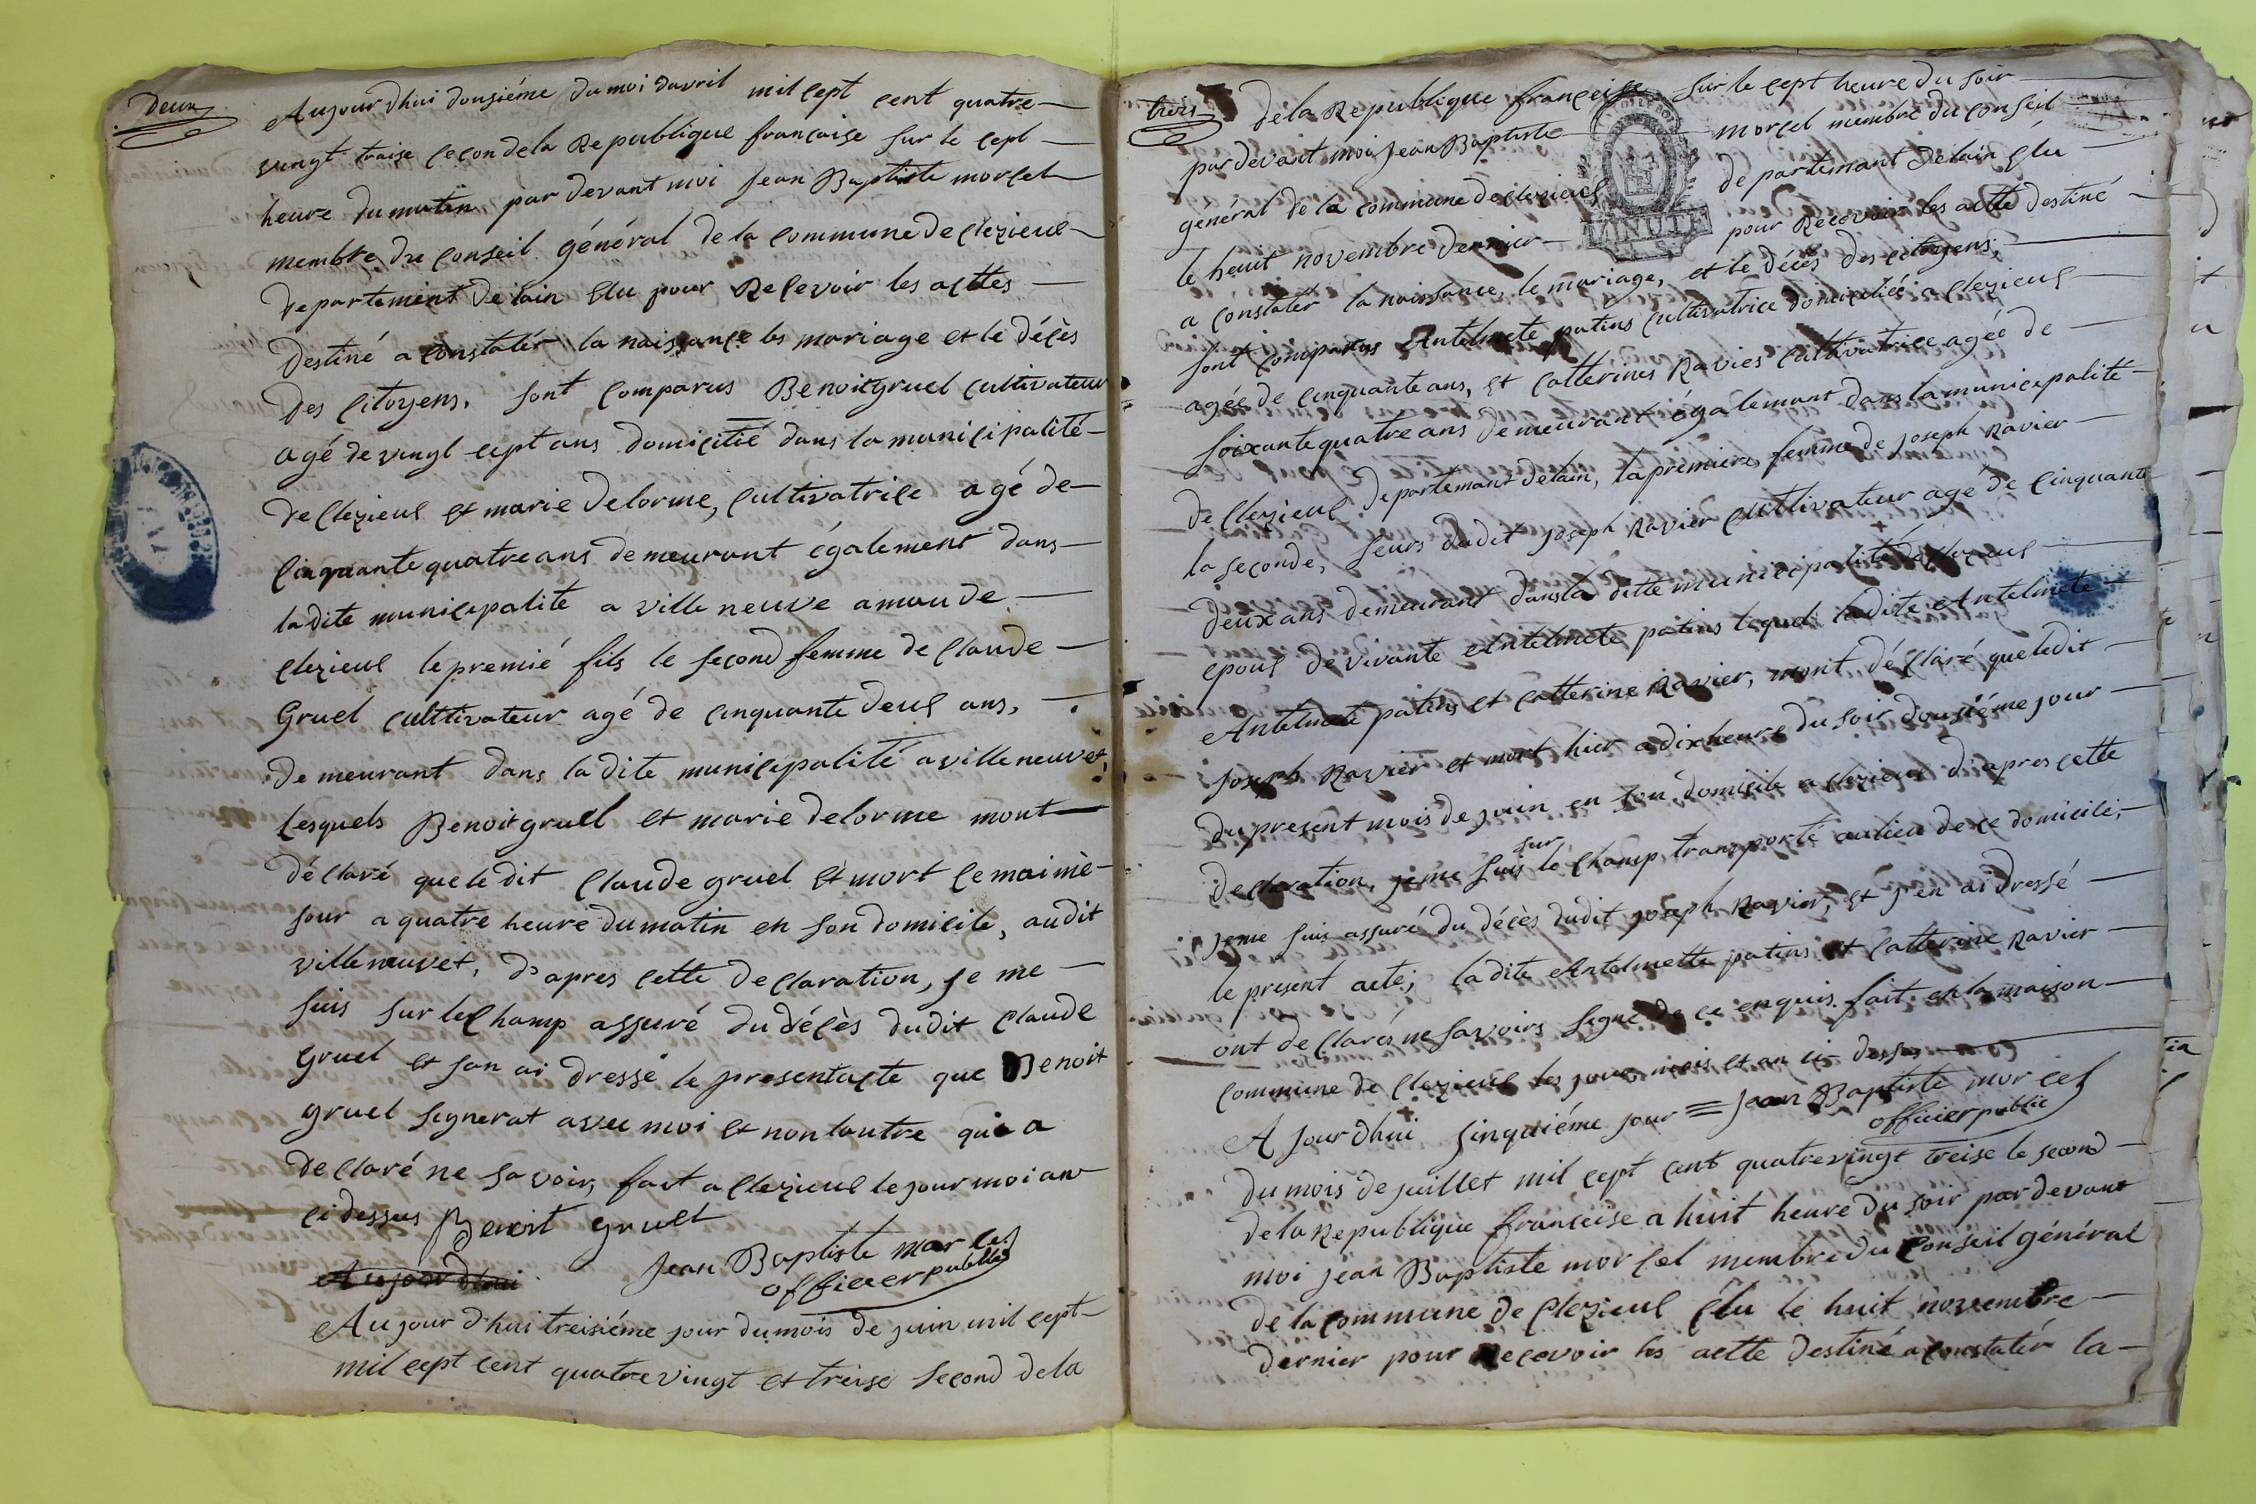 deux
Aujourdhui dousiéme du moi davril mil cept cent quatre
vingt traise second de la Republique francaise sur le cept
heure du matin par devant moi Jean Baptiste morcel
membre du conseil général de la commune de clezieul
departement de lain Elu pour Recevoir les acttes
destiné a constatér la naissance les mariage et le décès
des citoyens. sont comparus Benoit gruel cultivateur
agé de vingt cept ans domicilié dans la municipalité
de clezieul et marie delorme, cultivatrice agé de
cinquante quatre ans demeurant également dans
ladite municipalité a ville neuve
clezieul le premié fils le second femme de claude
Gruel culttivateur agé de cinquante deul ans,
demeurant dans ladite municipalité a villeneuvet,
lesquels Benoit gruel et marie delorme mont
déclaré que le dit claude gruel et mort ce maimè
jour a quatre heure du matin en son domicile, audit
villeneuvet, d'apres cette declaration, je me
suis sur le champ assuré du décès dudit claude
gruel et jan ai dressé le present acte que Benoit
gruel signerat avec moi et non lautre qui a
declaré ne savoir, fait a clezieul le jour moi an
ci dessus Benoit gruel
Jean Baptiste morcel
officier public
Aujourdhui
Aujour d'hui treisiéme jour du mois de juin mil cept
mil cept cent quatrevingt et treise second dela
trois
de la Republique françeise sur le cept heure du soir
par devant moi Jean Baptiste morcel membre du conseil
général de la commune de clezieul departemant de lain Elu
le heuit novembre dernier pour Recevoir les actte destiné
MINUTE
a constatér la naissance, le mariage, et le décès des citoyens,
sont comparus Antelmete patins cultivatrice domiciliéé a clezieul
agéé de cinquante ans, et catterines Ravies cultivatrice agéé de
soixante quatre ans demeurant égalemant dans la municepalité
de clezieul departemant delain, la premiere, femme de joseph Ravier
la seconde, seurs dudit joseph Ravier culttivateur agé de cinquante
deux ans demeurant dans la ditte municipalité de clezieul
epous de vivante Antelmete patins lequel ladite Antelmete
Antelmete patins et catterine Ravier, mont déclaré que ledit
joseph Ravier et mort hier a dix heure du soir dousiéme jour
du present mois de juin en son domicile a clezieul d'apres cette
declaration, je me suis sur le champ transporté au lieu de ce domicile,
je me suis assuré du décès dudit joseph Ravier, et j'en ai dressé
le present acte; ladite Antelmette patins et catterine Ravier
ont declarés ne savoirs signé de ce enquis. fait en la maison
commune de clezieul les jour mois et an ci dessus
Jean Baptiste morcel
officier public
A jourdhui sinquiéme jour
du mois de juillet mil cept cent quatrevingt treise le second
de la Republique franceise a huit heure du soir par devant
moi jean Baptiste morcel membre du conseil général
de la commune de clezieul élu le huit novembre
dernier pour Recevoir les actte destiné a constatér la